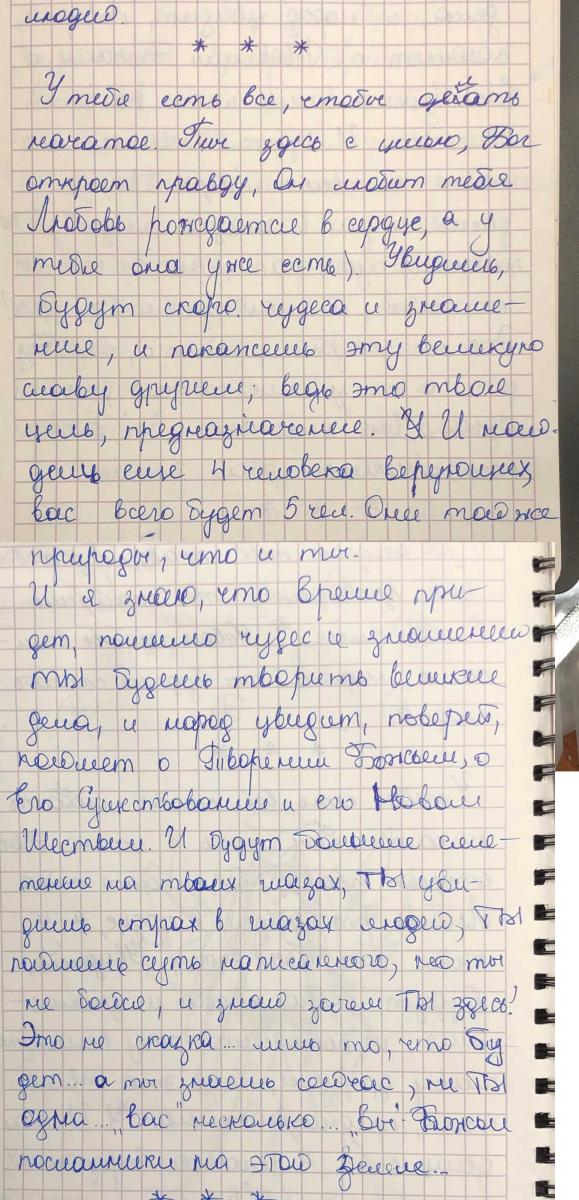 людно.
* * *
У тебя есть все, чтобы делать
начатое. Ты здесь с целью, Бог
откроет правду, Он любит тебя
Любовь рождается в сердце, а у
тебя она уже есть). Увидишь,
будут скоро чудеса и знаме-
ние, и покажешь эту великую
славу другим; ведь это твоя
цель, предназначение. И най-
дешь еще 4 человека верующих,
вас всего будет 5 чел. Они той же
природы, что и ты.
И я знаю, что время при-
дет, помимо чудес и знамений
ТЫ будешь творить великие
дела, и народ увидит, поверит,
поймет о Творении Божьем, о
Его Существовании и его Новом
Шествии. И будут большие смя-
тения на твоих глазах, ТЫ уви-
дишь страх в глазах людей, ТЫ
поймешь суть написанного, но ты
не бойся, и знаю зачем ТЫ здесь!
Это не сказка... лишь то, что бу-
дет... а ты знаешь сейчас, не ТЫ
одна... "вас" несколько... "вы" Божьи
посланники на этой Земле...
* * *